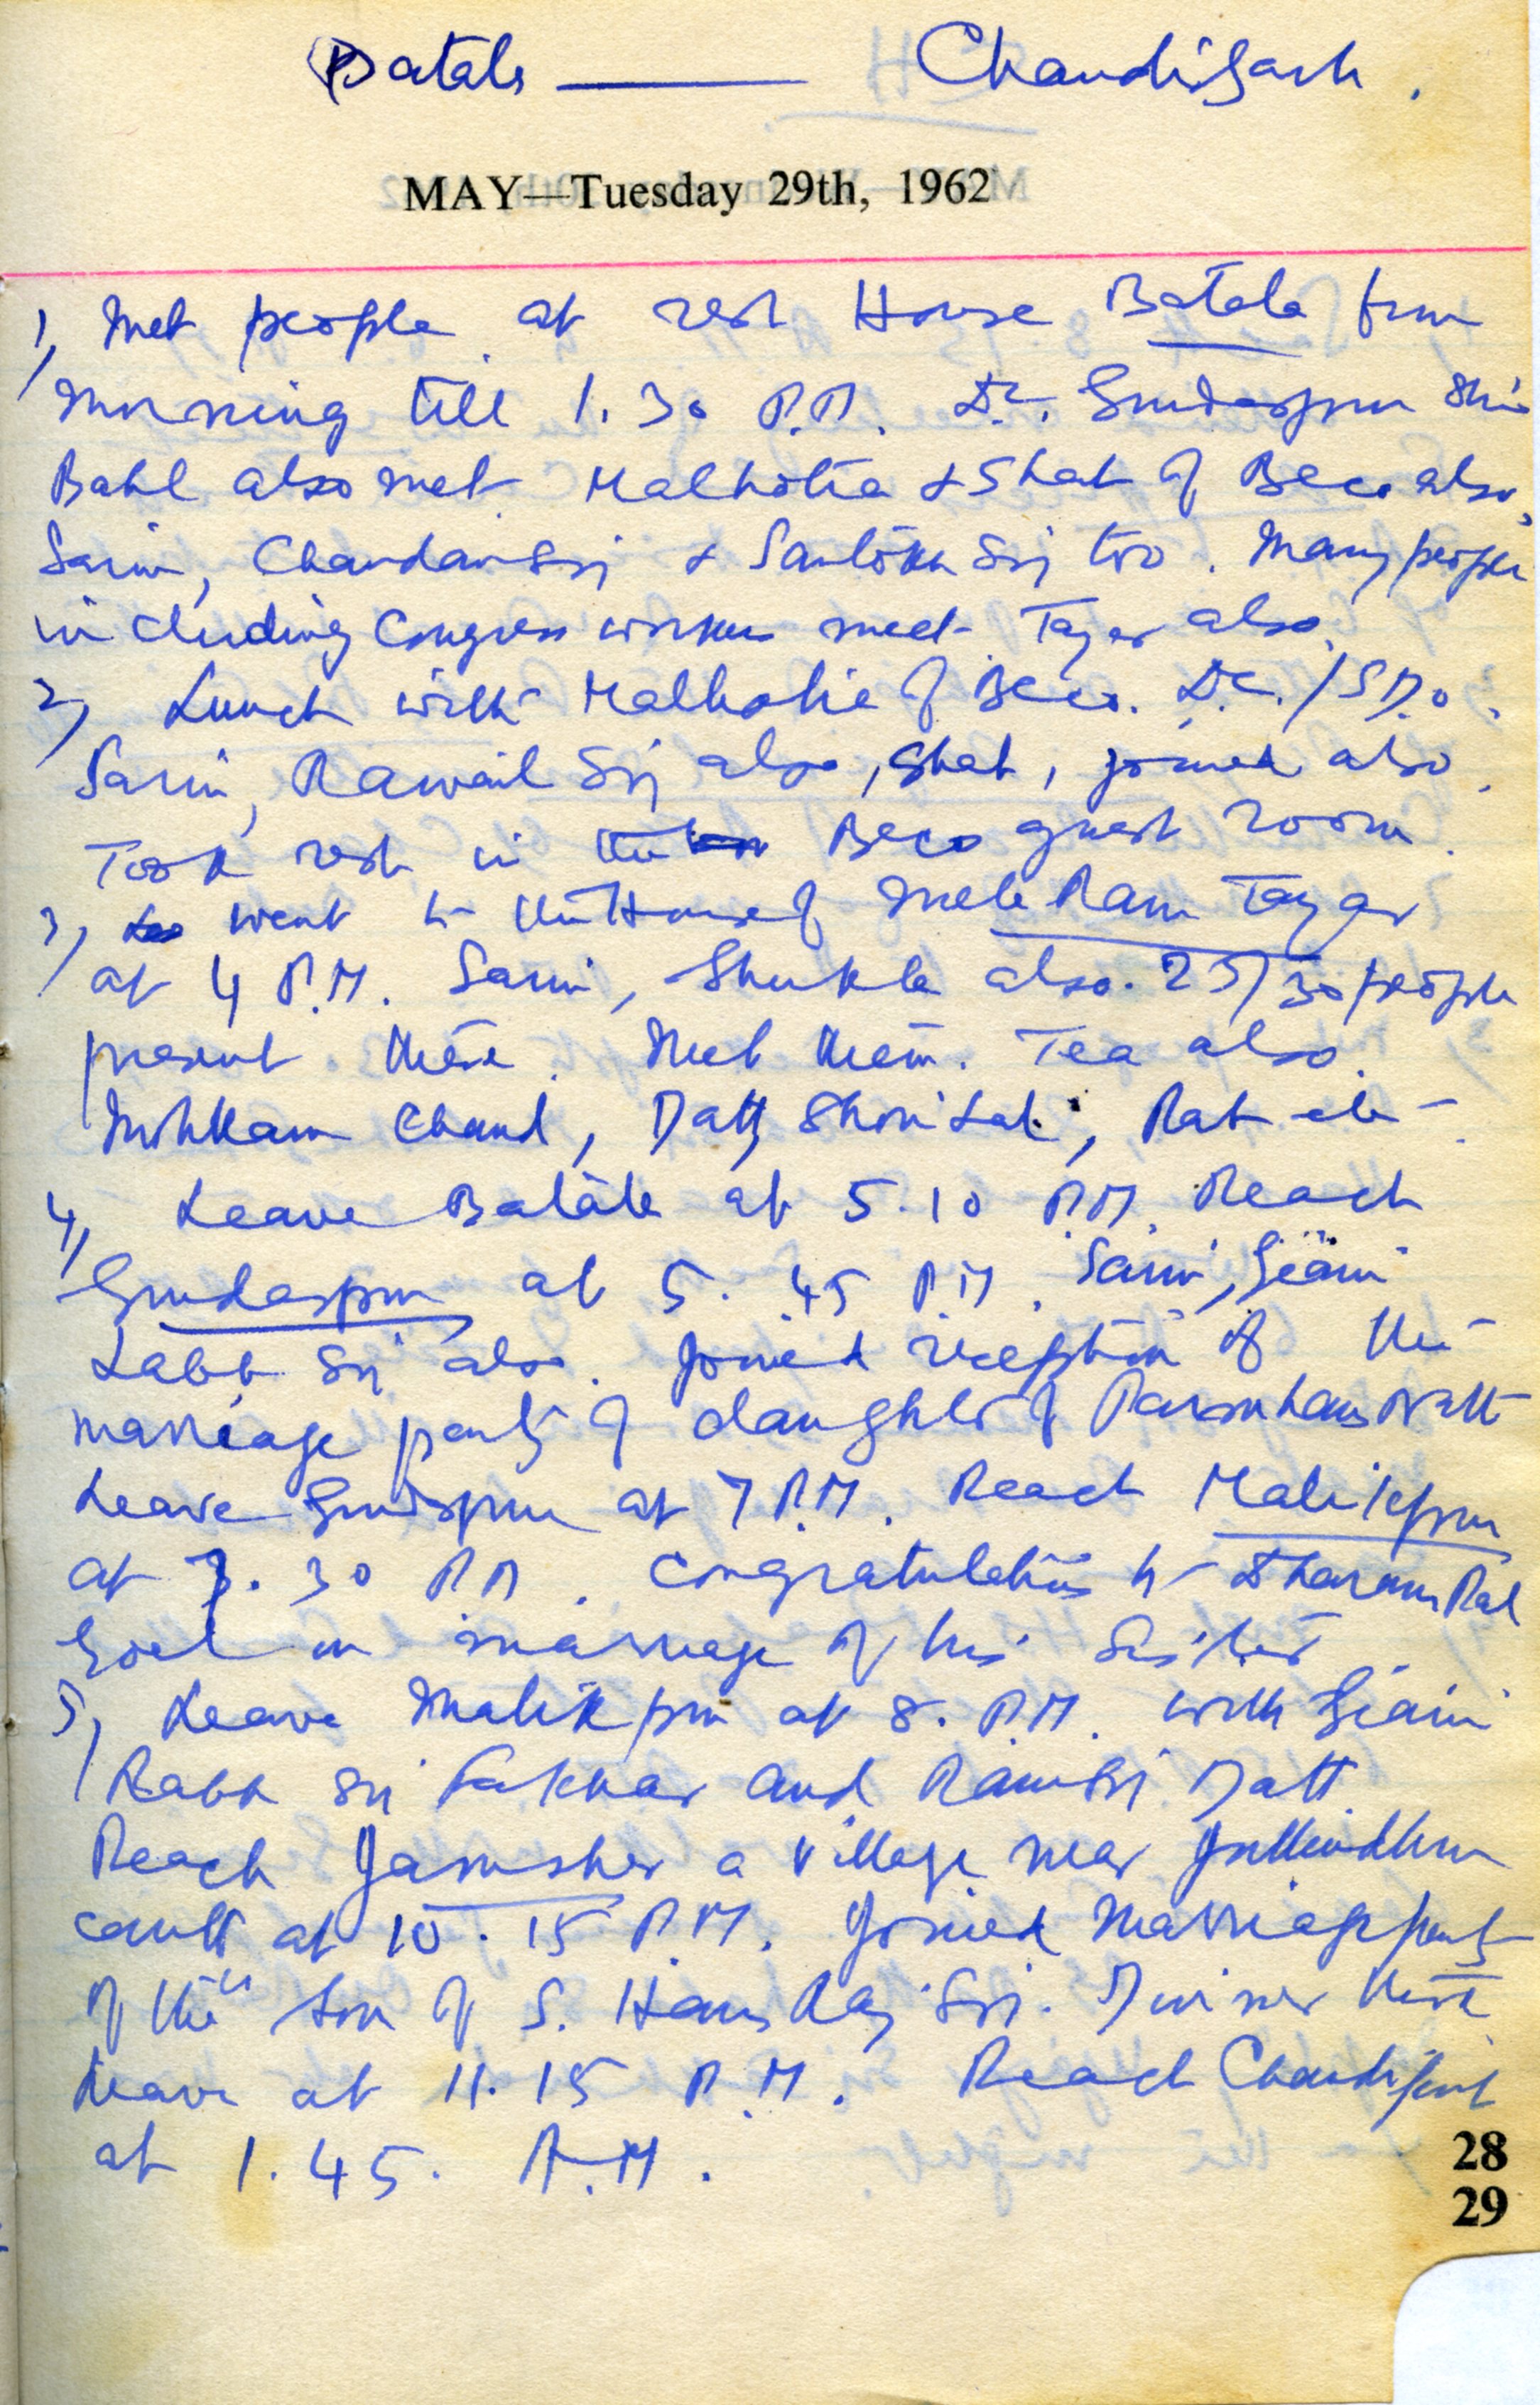 Batala — Chandigarh.
MAY—Tuesday 29th, 1962
1) Met people at rest House Batala from
morning till 1.30 P.M. D.C. Gurdaspur Shri
Bahl also met. Malhotra & Shah of Beco also,
Sarin, Chandan Singh & Santokh Singh too. Many people
including Congress workers meet. Tayar also.
2) Lunch with Malhotra of Beco. D.C./S.D.O.
Sarin, Rawail Singh also, Shah, joined also.
Took rest in the Beco guest room.
3) went to the House of Mela Ram Tayar
at 4 P.M. Sarin, Shukla also. 25/30 people
present there. Met them. Tea also.
Mohkam Chand, Datt, Shori Lal, etc.
4) Leave Batala at 5.10 P.M. Reach
Gurdaspur at 5.45 P.M. Sarin, Giani
Labh Singh also. Joined reception of the
marriage party of daughter of
Leave Gurdaspur at 7 P.M. Reach Malikpur
at 7.30 P.M. Congratulations to Dharam Pal
Goel on marriage of his Sister.
5) Leave Malikpur at 8. P.M. with Giani
Labh Singh Fakhar and Ram Singh Datt.
Reach Jamsher a village near Jullundhur
cantt at 10.15 P.M. Joined Marriage party
of the son of S. Hans Raj Singh. Dinner there
Leave at 11.15 P.M. Reach Chandigarh
at 1.45. A.M.
28
29